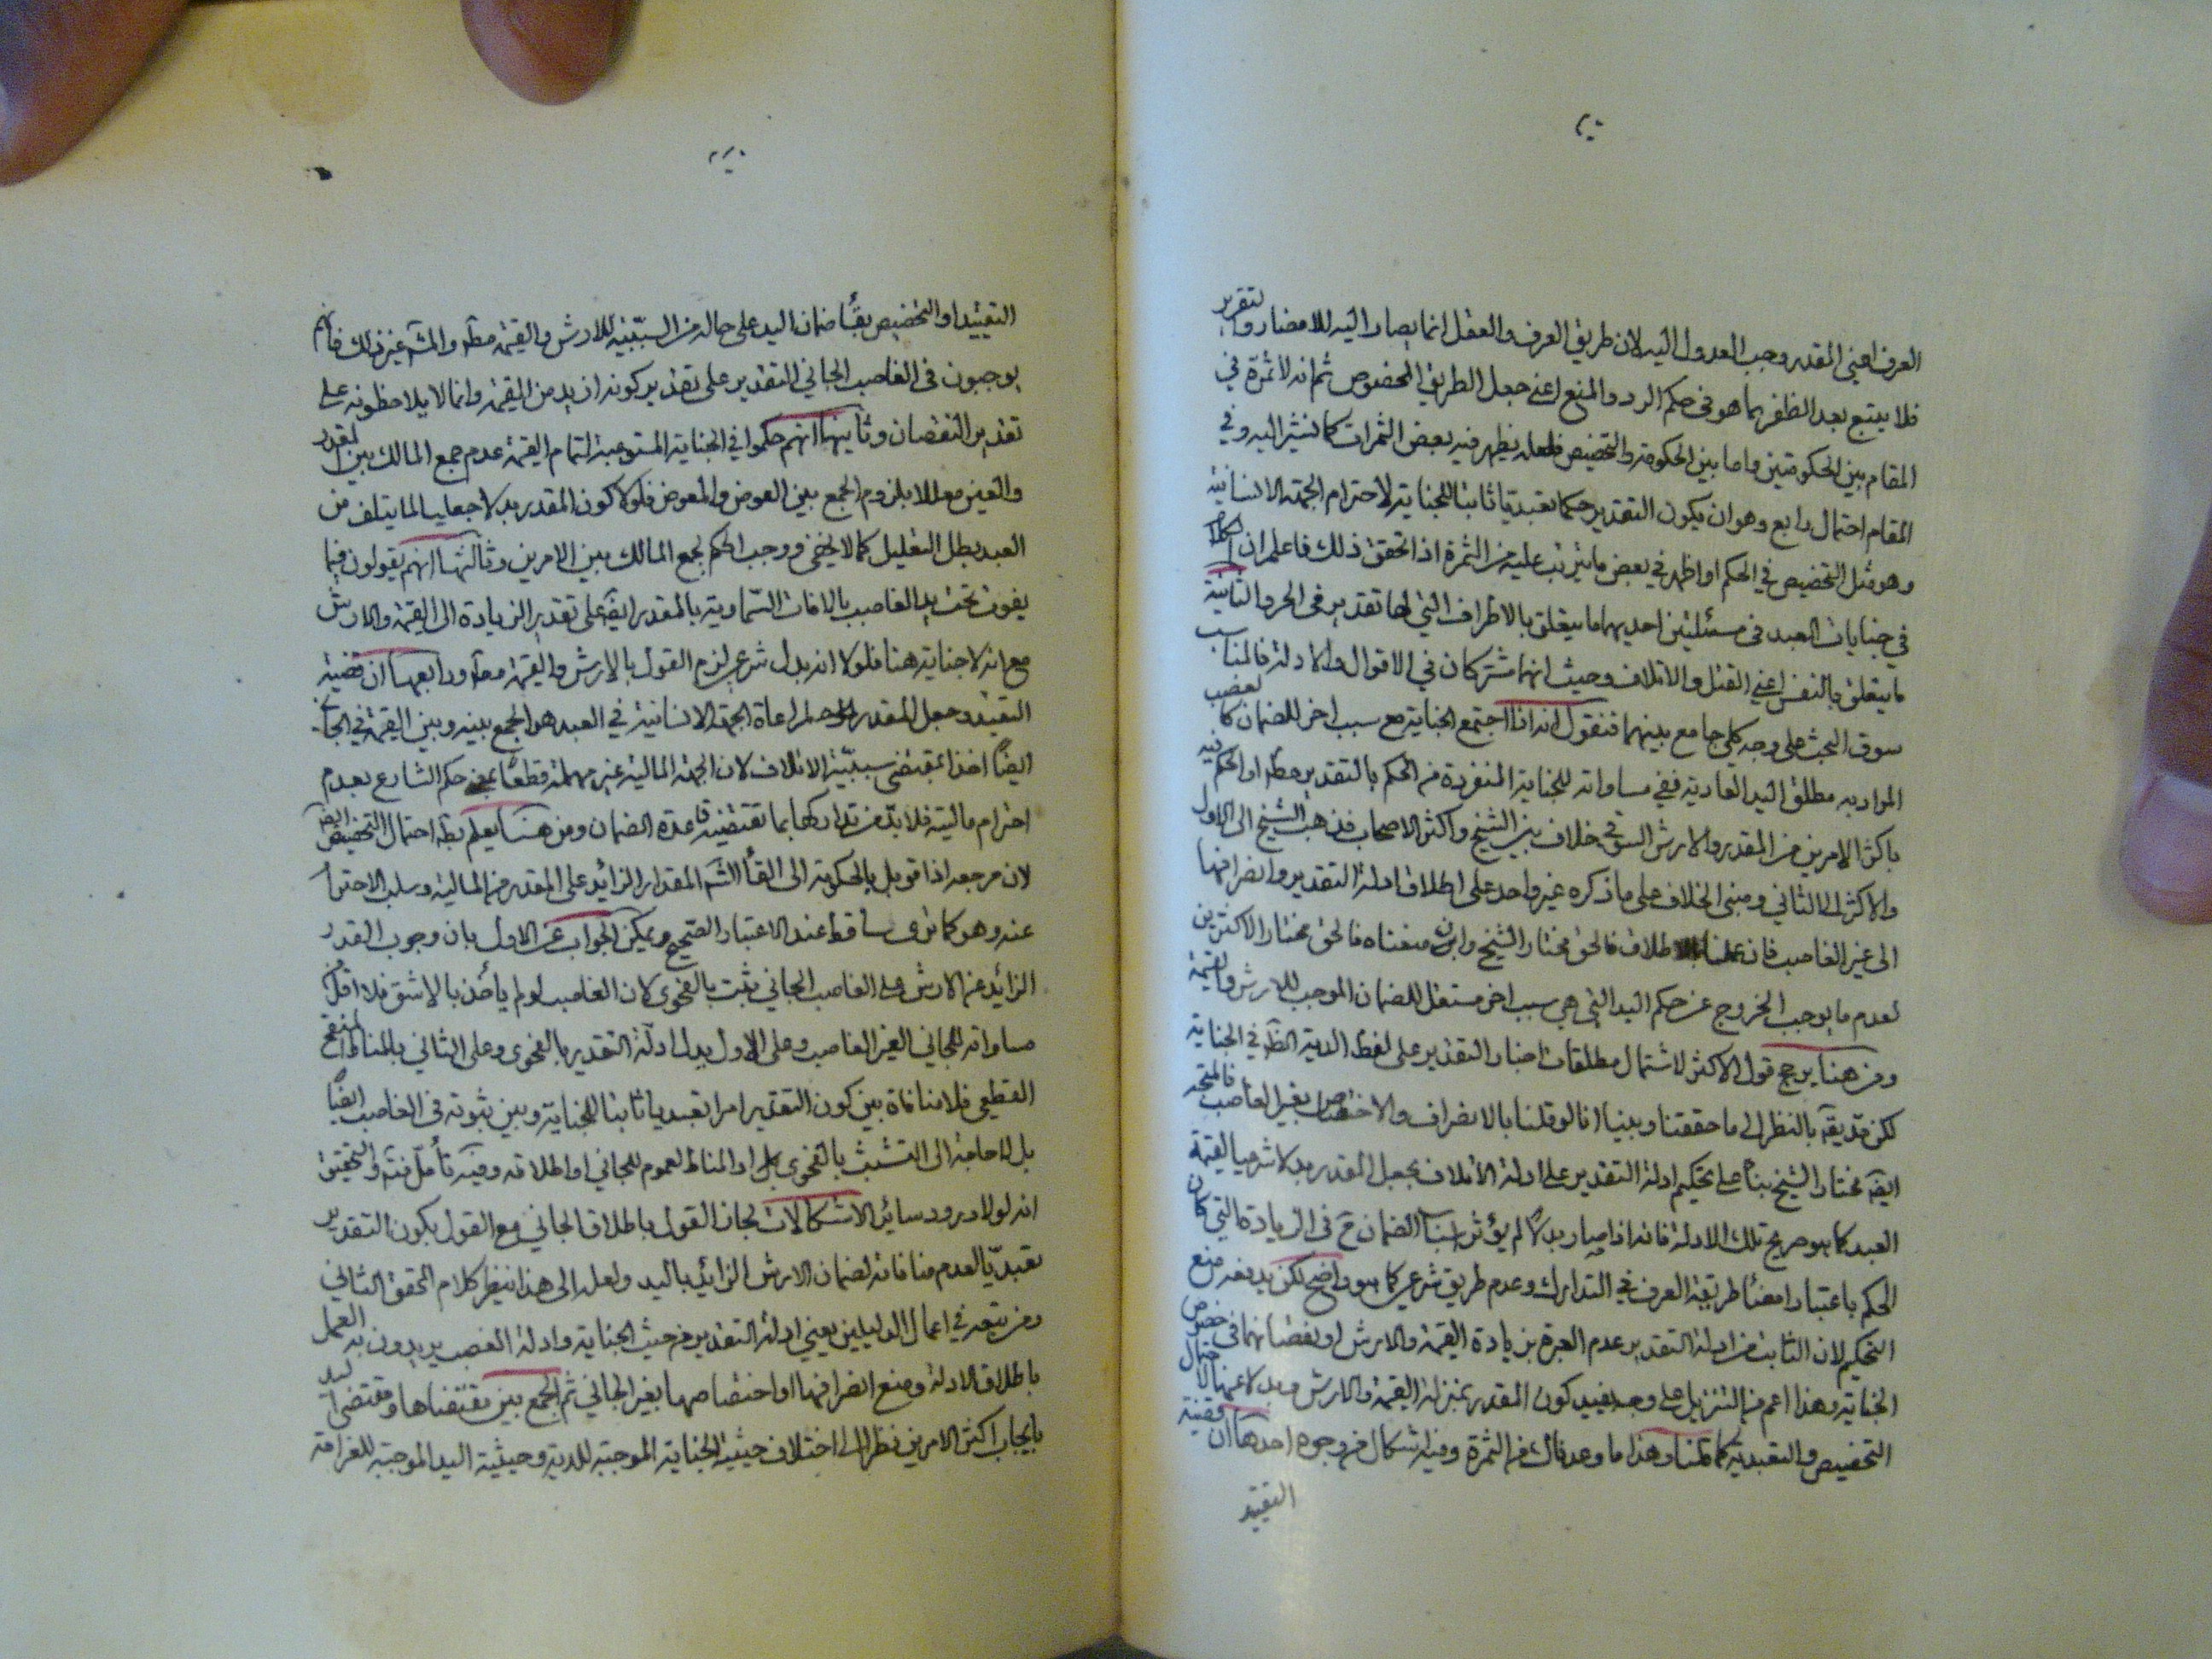 العرف اعني المقدر وجب العدول اليه لان طريق العرف والعقل انما يصار اليه للامضاء والتقرير
فلا يتبع بعد الظفر بما هو في حكم الردع والمنع اعني جعل الطريق المخصوص ثم انه لا ثمرة في
المقام بين الحكومتين واما بين الحكومة والتخصيص فلعله يظهر فيه بعض الثمرات كما نشير اليه وفي
المقام احتمال رابع وهو ان يكون التقدير حكما تعبديا ثابتا للجناية لاحترام الجهة الانسانية
وهو مثل التخصيص في الحكم او اظهر في بعض ما يترتب عليه من الثمرة اذا تحقق ذلك فاعلم ان الكلام
في جنايات العبد في مسئلتين احديهما ما يتعلق بالاطراف التي لها تقدير في الحر والثانية
ما يتعلق بالنفس اعني القتل والاتلاف وحيث انهما مشتركان في الاقوال والادلة فالمناسب
سوق البحث على وجه كلي جامع بينهما فنقول انه اذا اجتمع الجناية مع سبب اخر للضمان كالغصب
المراد به مطلق اليد العادية ففي مساواته للجناية المنفردة من الحكم بالتقدير مطلقا او الحكم فيه
باكثر الامرين من المقدر والارش السوقي خلاف بين الشيخ واكثر الاصحاب فذهب الشيخ الى الاول
والاكثر الى الثاني ومبنى الخلاف على ما ذكره غير واحد على اطلاق ادلة التقدير وانصرافها
الى غير الغاصب فان عملنا بالاطلاق فالحق مختار الشيخ وان منعناه فالحق مختار الاكثرين
لعدم ما يوجب الخروج عن حكم اليد التي هي سبب اخر مستقل للضمان الموجب للارش والقيمة
ومن هنا يرجح قول الاكثر لاشتمال مطلقات اخبار التقدير على لفظ الدية الظ في الجناية
لكن قد يق بالنظر الى ما حققنا وبنينا انا لو قلنا بالانصراف والاختصاص بغير الغاصب فالمتجه
ايضا مختار الشيخ بناء على تحكيم ادلة التقدير على ادلة الاتلاف بجعل المقدر بدلا شرعيا لقيمة
العبد كما هو صريح تلك الادلة فانه اذا صار بدلا لم يؤثر اسباب الضمان ح في الزيادة التي كان
الحكم باعتبار امضاء طريقة العرف في التدارك وعدم طريق شرعي كما هو واضح لكن يدفعه منع
التحكيم لان الثابت من ادلة التقدير عدم العبرة بزيادة القيمة والارش او نقصانهما في خصوص
الجناية وهذا اعم من التنزيل على وجه يفيد كون المقدر بمنزلة القيمة والارش وبدلا عنهما لاحتمال
التخصيص والتعبدية كما قلنا وهذا ما وعدناك من الثمرة وفيه اشكال من وجوه احدها ان قضية
التقييد
التقييد او التخصيص بقاء ضمان اليد على حاله من السببية للارش والقيمة مطلقا والمش غير ذلك فانهم
يوجبون في الغاصب الجاني التقدير على تقدير كونه ازيد من القيمة وانما لا يلاحظونه على
تقدير النقصان وثانيها انهم حكموا في الجناية المستوعبة لتمام القيمة عدم جمع المالك بين المقدر
والعين معللا بلزوم الجمع بين العوض والمعوض فلولا كون المقدر بدلا جعليا لما يتلف من
العبد بطل التعليل كما لا يخفى ووجب الحكم بجمع المالك بين الامرين وثالثها انهم يقولون فيما
يفوت تحت يد الغاصب بالافات السماوية بالمقدر ايضا على تقدير الزيادة الى القيمة والارش
مع انه لا جناية هنا فلولا انه بدل شرعي لزم القول بالارش والقيمة مطلقا ورابعها ان قضية
التقييد وجعل المقدر لمراعاة الجهة الانسانية في العبد هو الجمع بينه وبين القيمة في الجاني
ايضا اخذا بمقتضى سببية الاتلاف لان الجهة المالية غير مهملة قطعا بمعنى حكم الشارع بعدم
احترام ماليته فلا بد من تداركها بما تقتضيه قاعدة الضمان ومن هنا يعلم بطلان احتمال التخصيص ايضا
لان مرجعه اذا قوبل بالحكومة الى القاء الشارع المقدار الزائد على المقدر من المالية وسلب الاحترام
عنه وهو كما ترى ساقط عند الاعتبار الصحيح ويمكن الجواب عن الاول بان وجوب القدر
الزائد عن الارش على الغاصب الجاني يثبت بالفحوى لان الغاصب لو لم يأخذ بالاشق فلا اقل من
مساواته للجاني الغير الغاصب وعلى الاول يدل ادلة التقدير بالفحوى وعلى الثاني بالمناط المنقح
القطعي فلا منافاة بين كون التقدير امرا تعبديا ثابتا للجناية وبين ثبوته في الغاصب ايضا
بل لا حاجة الى التشبث بالفحوى او المناط لعموم للجاني او اطلاقه وفيه تأمل فتدبر والتحقيق
انه لولا ورود سائر الاشكالات لجاز القول باطلاق الجاني مع القول بكون التقدير
تعبديا لعدم منافاته لضمان الارش الزائد باليد ولعله الى هذا ينظر كلام المحقق الثاني
ومن تبعه في اعمال الدليلين يعني ادلة التقدير من حيث الجناية وادلة الغصب يريدون به العمل
باطلاق الادلة ومنع انصرافها او اختصاصها بغير الجاني ثم الجمع بين مقتضاها ومقتضى اليد
بايجاب اكثر الامرين نظرا الى اختلاف حيثية الجناية الموجبة للدية وحيثية اليد الموجبة للغرامة